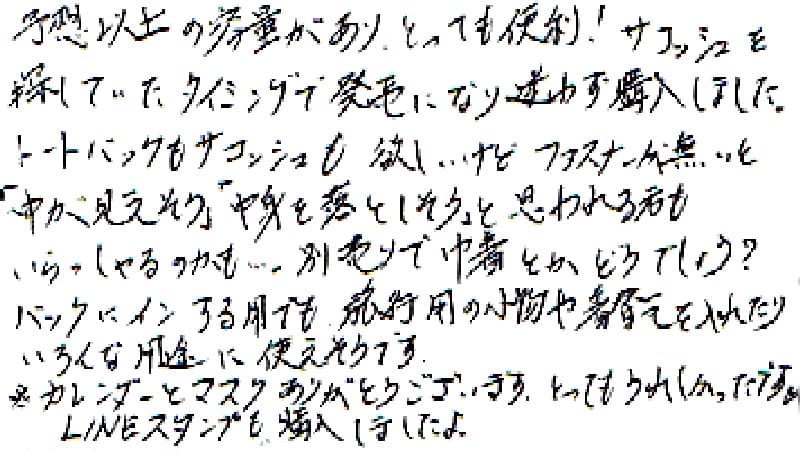 予想以上の容量があり、とっても便利！サコッシュを
探していたタイミングで発売になり迷わず購入しました。
トートバックもサコッシュも欲しいけどファスナーが無いと
「中が見えそう」「中身を落としそう」と思われる方も
いらっしゃるのかも…。別売りで巾着とかどうでしょう？
バックにインする用でも、旅行用の小物や着替えを入れたり
いろんな用途に使えそうです。
※カレンダーとマスクありがとうございます。とってもうれしかったです。
LINEスタンプも購入しましたよ。